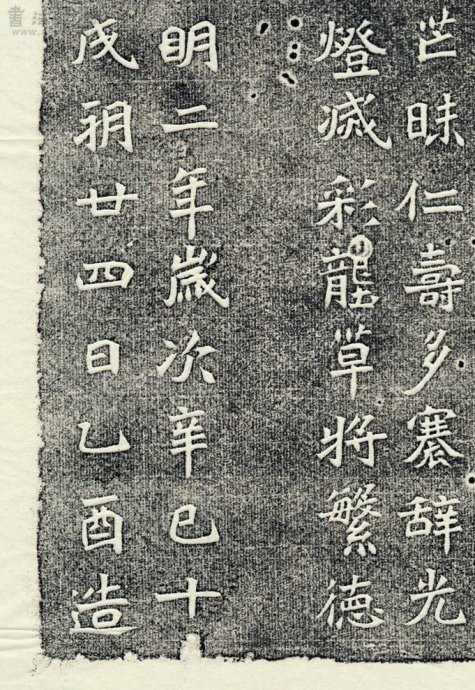 芒昧仁壽多褰辭光
燈滅彩壟草將繁德
明二年歲次辛巳十
戌朔廿四日乙酉造